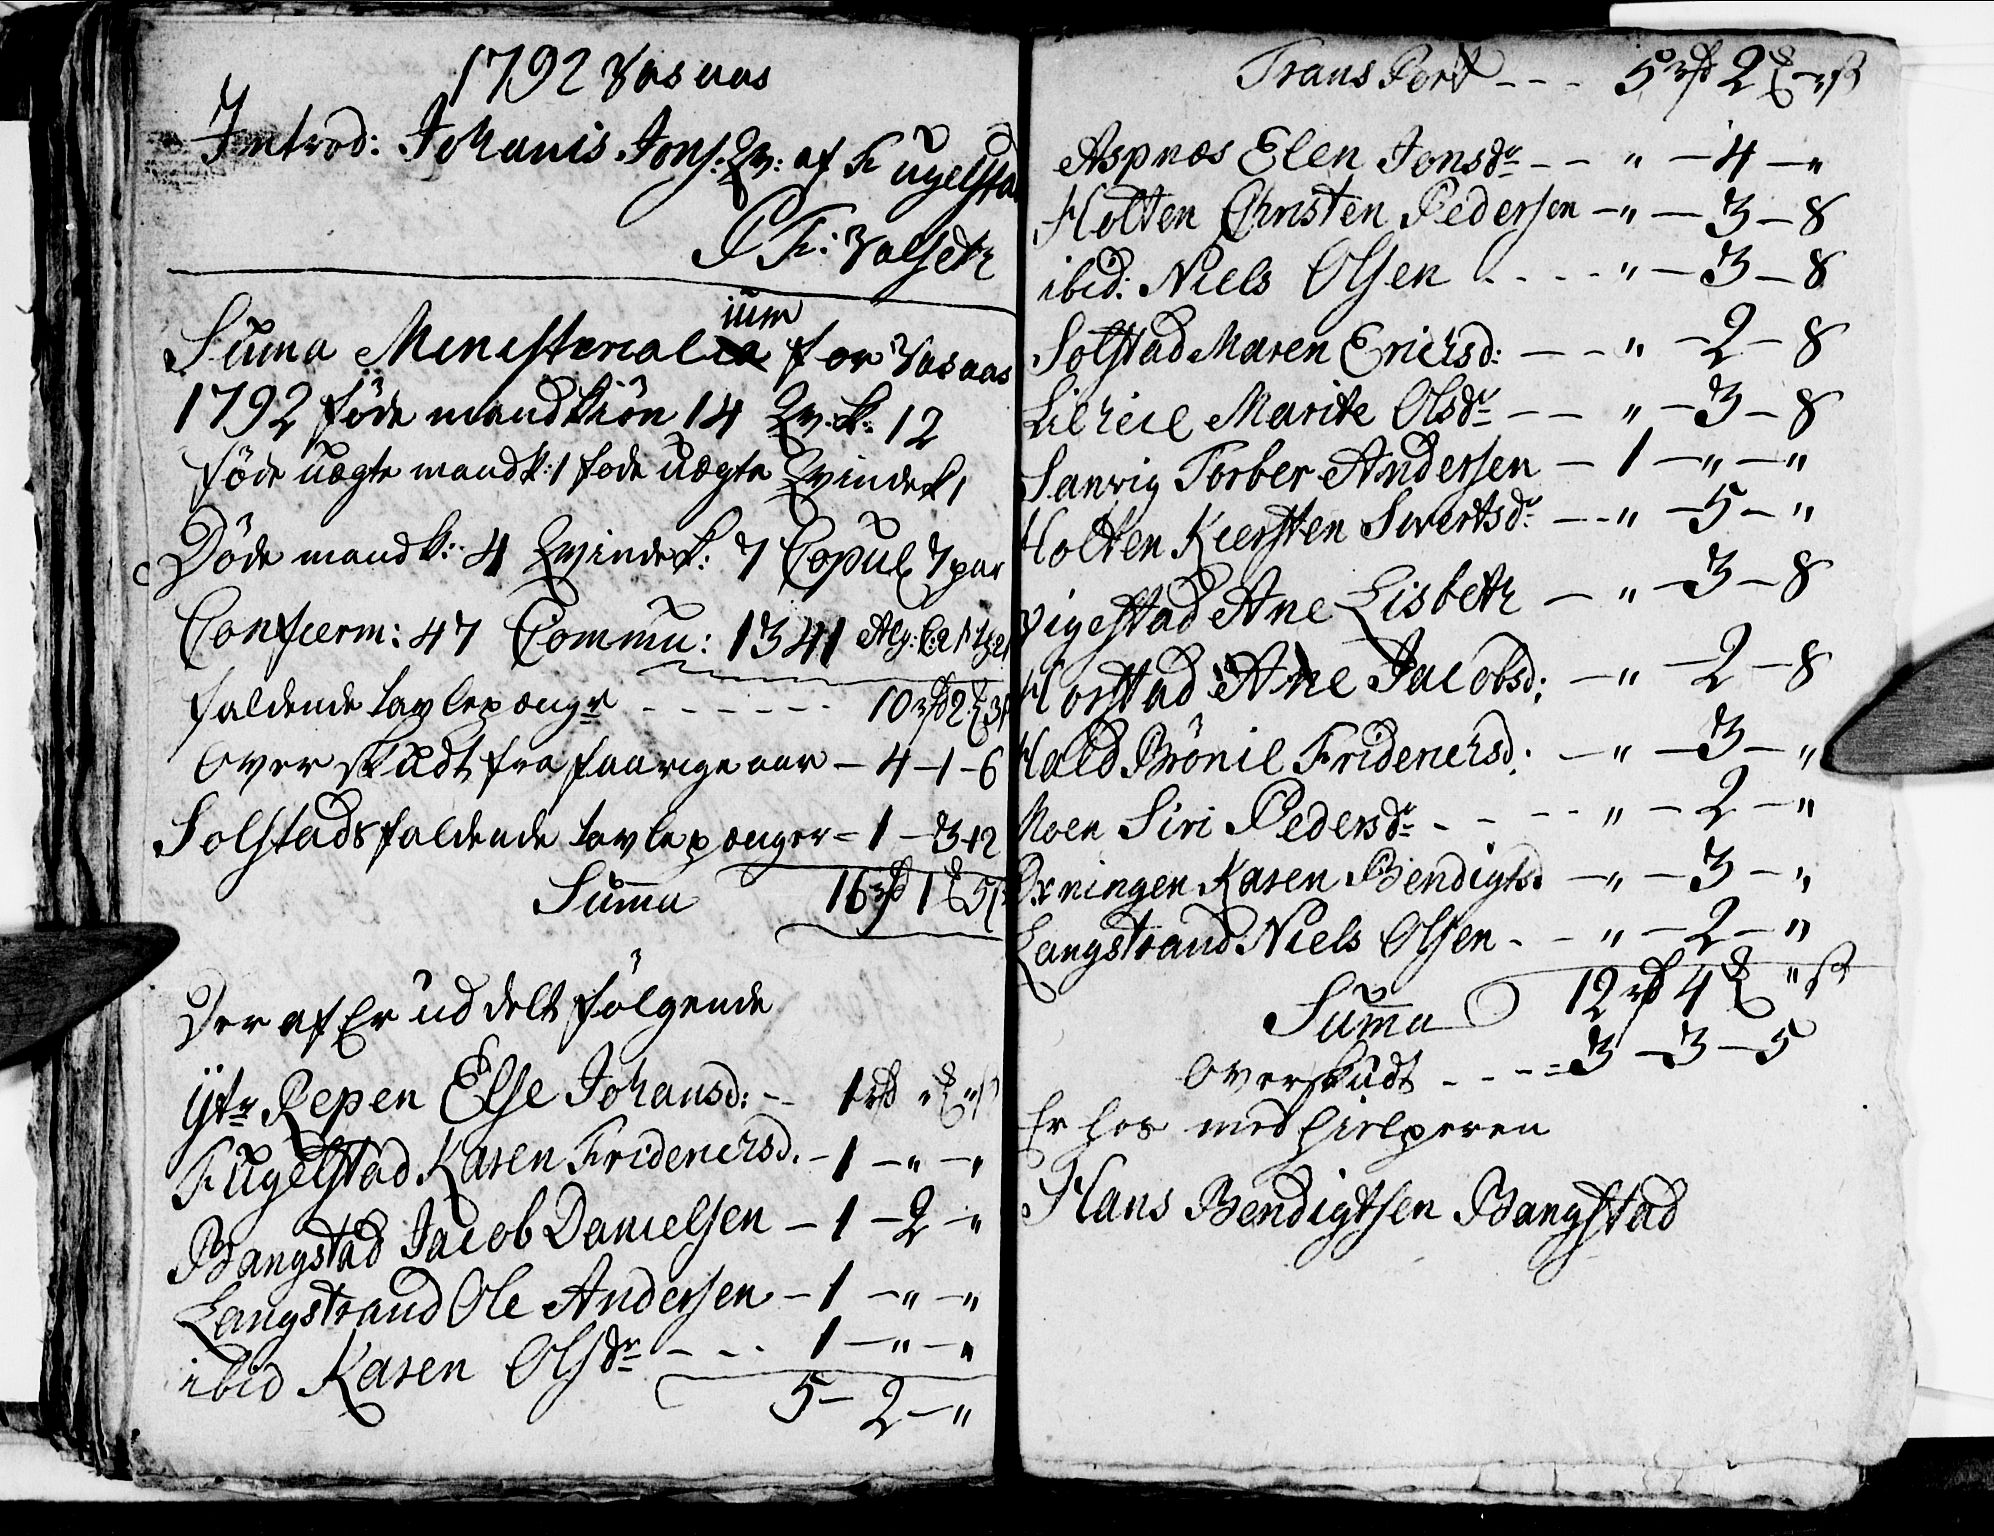 1792 Vasaas
Introd: Johanis Jons. Qv: af Fugelstad
P F: Valseth
Suma Ministerialium for Vasaas
1792 föde mandkiön 14 Qv.k: 12
föde uægte mandk: 1 föde uægte Qvindek 1
Döde mandk: 4 Qvindek: 7 Copul 7 par
Confierm: 47 Commu: 1341
faldende tavlepænge - - - - - - 10 rd 2
over skudt fra faarige aar - 4 - 1 - 6
Solstads faldende tavlepænger - 1 - 3 - 12
Summa 16 rd 1 5
Der af Er uddelt fölgende
Ytr Repen Else Johansd: - - 1 rd " "
Fugelstad Karen Friderichsd. - 1 - " - "
Bangstad Jacob Danielsen - 1 - 2 - "
Langstrand Ole Andersen - 1 - " - "
ibid Karen Olsdr - - - 1 - " - "
5 - 2 - "
Trans Port - - - 5 rd 2
Aspnæs Elen Jonsdr - - " - 4 - "
Holten Christen Pedersen - " - 3 - 8
ibid: Niels Olsen - - - - " - 3 - 8
Solstad Maren Erichsd: - - " - 2 - 8
Marite Olsdr - - " - 3 - 8
Sanvig Torber Andersen - 1 - " - "
Holten Kiersten Sivertsdr - - " - 5 - "
Vigestad Ane Lisbeth - " - 3 - 8
Horstad Ane Jacobsd: - " - 2 - 8
Hald Brönil Friderichsd: - " - 3 - "
Moen Siri Pedersdr - - - - " - 2 - "
Øxningen Karen Bendigtsd - " - 3 - "
Langstrand Niels Olsen - - " - 2 - "
Summa 12 rd 4 " ß
overskudt - - - = 3 - 3 - 5
Er hos medhielperen
Hans Bendigtsen Bangstad